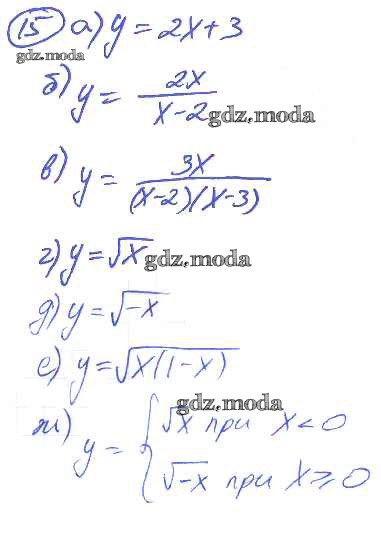 15 а) y = 2x+3
gdz.moda
б) y = 2x / x-2 gdz.moda
в) y = 3x / (x-2)(x-3)
г) y = √x gdz.moda
д) y = √-x
е) y = √x(1-x)
gdz.moda
ж) y = { √x при x < 0
√-x при x ≥ 0